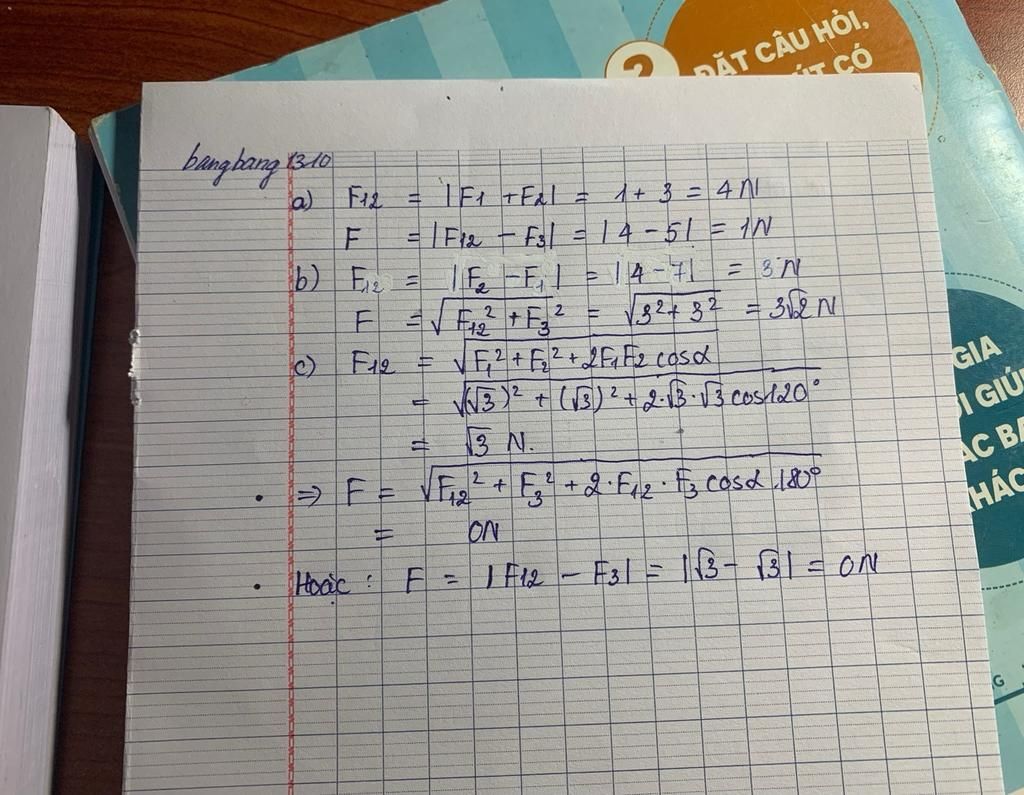 2
ĐẶT CÂU HỎI,
CÓ
bangbang 1310
a) F12 = |F1 + F2| = 1 + 3 = 4 N
F = |F12 - F3| = |4 - 5| = 1N
b) F12 = |F2 - F1| = |4 - 7| = 3 N
F = √F12² + F3² = √3² + 3² = 3√2 N
c) F12 = √F1² + F2² + 2F1F2 cosα
= √(√3)² + (√3)² + 2·√3·√3 cos120°
= √3 N.
• => F = √F12² + F3² + 2·F12·F3 cosα 180°
= 0N
• Hoặc : F = |F12 - F3| = |√3 - √3| = 0N
GIA
GIÚP
BA
KHÁC